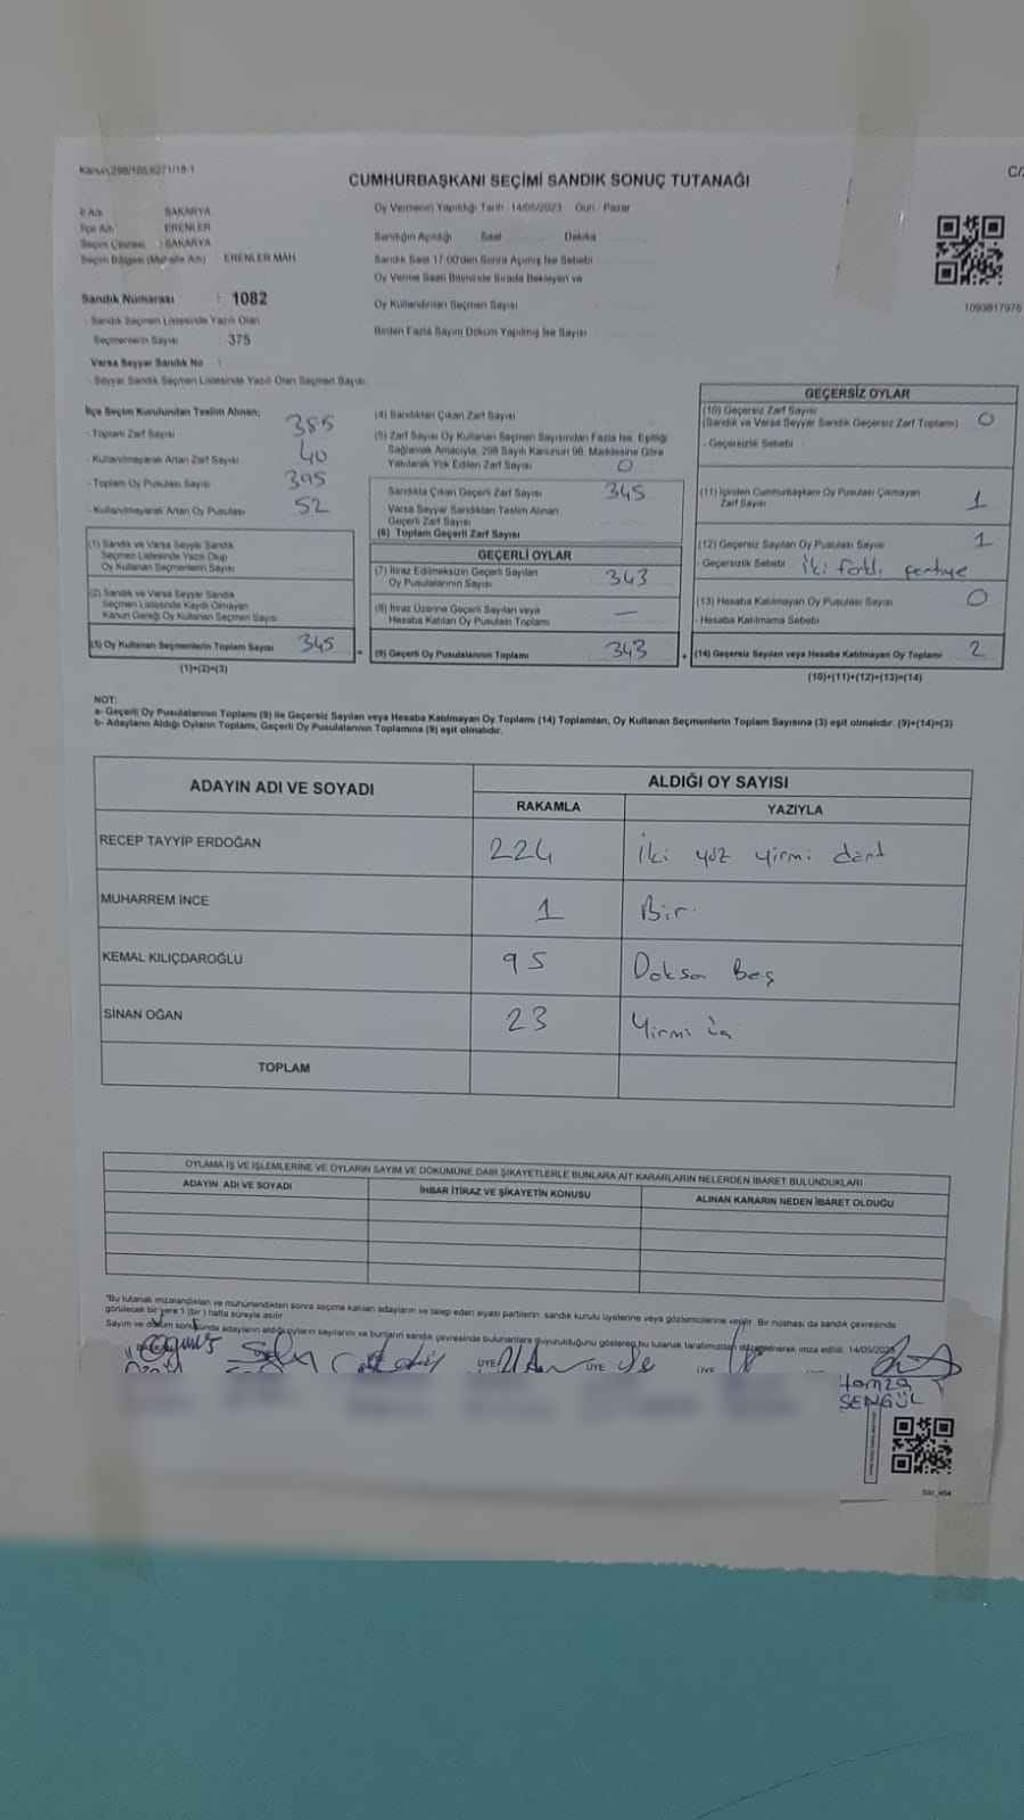 Kanun;298/105,6271/18-1
CUMHURBAŞKANI SEÇİMİ SANDIK SONUÇ TUTANAĞI
İl Adı SAKARYA
İlçe Adı ERENLER
Seçim Çevresi : SAKARYA
Seçim Bölgesi (Mahalle Adı) ERENLER MAH.
Sandık Numarası : 1082
Sandık Seçmen Listesinde Yazılı Olan
Seçmenlerin Sayısı 375
Varsa Seyyar Sandık No :
Seyyar Sandık Seçmen Listesinde Yazılı Olan Seçmen Sayısı
Oy Vermenin Yapıldığı Tarih : 14/05/2023 Gün : Pazar
Sandığın Açıldığı Saat Dakika
Sandık Saat 17:00'den Sonra Açılmış İse Sebebi
Oy Verme Saati Bitiminde Sırada Bekleyen ve
Oy Kullandırılan Seçmen Sayısı
Birden Fazla Sayım Döküm Yapılmış İse Sayısı
1093817976
İlçe Seçim Kurulundan Teslim Alınan;
- Toplam Zarf Sayısı 385
- Kullanılmayarak Artan Zarf Sayısı 40
- Toplam Oy Pusulası Sayısı 395
- Kullanılmayarak Artan Oy Pusulası 52
(1) Sandık ve Varsa Seyyar Sandık
Seçmen Listesinde Yazılı Olup
Oy Kullanan Seçmenlerin Sayısı
(2) Sandık ve Varsa Seyyar Sandık
Seçmen Listesinde Kaydı Olmayan
Kanun Gereği Oy Kullanan Seçmen Sayısı
(3) Oy Kullanan Seçmenlerin Toplam Sayısı 345
(1)+(2)=(3)
(4) Sandıktan Çıkan Zarf Sayısı
(5) Zarf Sayısı Oy Kullanan Seçmen Sayısından Fazla İse, Eşitliği
Sağlamak Amacıyla, 298 Sayılı Kanunun 98. Maddesine Göre
Yakılarak Yok Edilen Zarf Sayısı 0
Sandıkta Çıkan Geçerli Zarf Sayısı 345
Varsa Seyyar Sandıktan Teslim Alınan
Geçerli Zarf Sayısı
(6) Toplam Geçerli Zarf Sayısı
GEÇERLİ OYLAR
(7) İtiraz Edilmeksizin Geçerli Sayılan
Oy Pusulalarının Sayısı 343
(8) İtiraz Üzerine Geçerli Sayılan veya
Hesaba Katılan Oy Pusulası Toplamı —
(9) Geçerli Oy Pusulalarının Toplamı 343
GEÇERSİZ OYLAR
(10) Geçersiz Zarf Sayısı
(Sandık ve Varsa Seyyar Sandık Geçersiz Zarf Toplamı) 0
- Geçersizlik Sebebi
(11) İçinden Cumhurbaşkanı Oy Pusulası Çıkmayan
Zarf Sayısı 1
(12) Geçersiz Sayılan Oy Pusulası Sayısı 1
- Geçersizlik Sebebi İki farklı
(13) Hesaba Katılmayan Oy Pusulası Sayısı 0
- Hesaba Katılmama Sebebi
(14) Geçersiz Sayılan veya Hesaba Katılmayan Oy Toplamı 2
(10)+(11)+(12)+(13)=(14)
NOT:
a- Geçerli Oy Pusulalarının Toplamı (9) ile Geçersiz Sayılan veya Hesaba Katılmayan Oy Toplamı (14) Toplamları, Oy Kullanan Seçmenlerin Toplam Sayısına (3) eşit olmalıdır. (9)+(14)=(3)
b- Adayların Aldığı Oyların Toplamı, Geçerli Oy Pusulalarının Toplamına (9) eşit olmalıdır.
ADAYIN ADI VE SOYADI
ALDIĞI OY SAYISI
RAKAMLA YAZIYLA
RECEP TAYYİP ERDOĞAN 224 İki yüz yirmi dört
MUHARREM İNCE 1 Bir
KEMAL KILIÇDAROĞLU 95 Doksan Beş
SİNAN OĞAN 23 Yirmi üç
TOPLAM
OYLAMA İŞ VE İŞLEMLERİNE VE OYLARIN SAYIM VE DÖKÜMÜNE DAİR ŞİKAYETLERLE BUNLARA AİT KARARLARIN NELERDEN İBARET BULUNDUKLARI
ADAYIN ADI VE SOYADI İHBAR İTİRAZ VE ŞİKAYETİN KONUSU ALINAN KARARIN NEDEN İBARET OLDUĞU
"Bu tutanak imzalandıktan ve mühürlendikten sonra seçime katılan adayların ve talep eden siyasi partilerin sandık kurulu üyelerine veya gözlemcilerine verilir. Bir nüshası da sandık çevresinde
görülecek bir yere 1 (bir) hafta süreyle asılır.
Sayım ve döküm sonucunda adayların aldığı oyların sayılarını ve bunların sandık çevresinde bulunanlara duyurulduğunu gösteren bu tutanak tarafımızdan düzenlenerek imza edildi. 14/05/2023
ÜYE ÜYE ÜYE
Hamza
ŞENGÜL